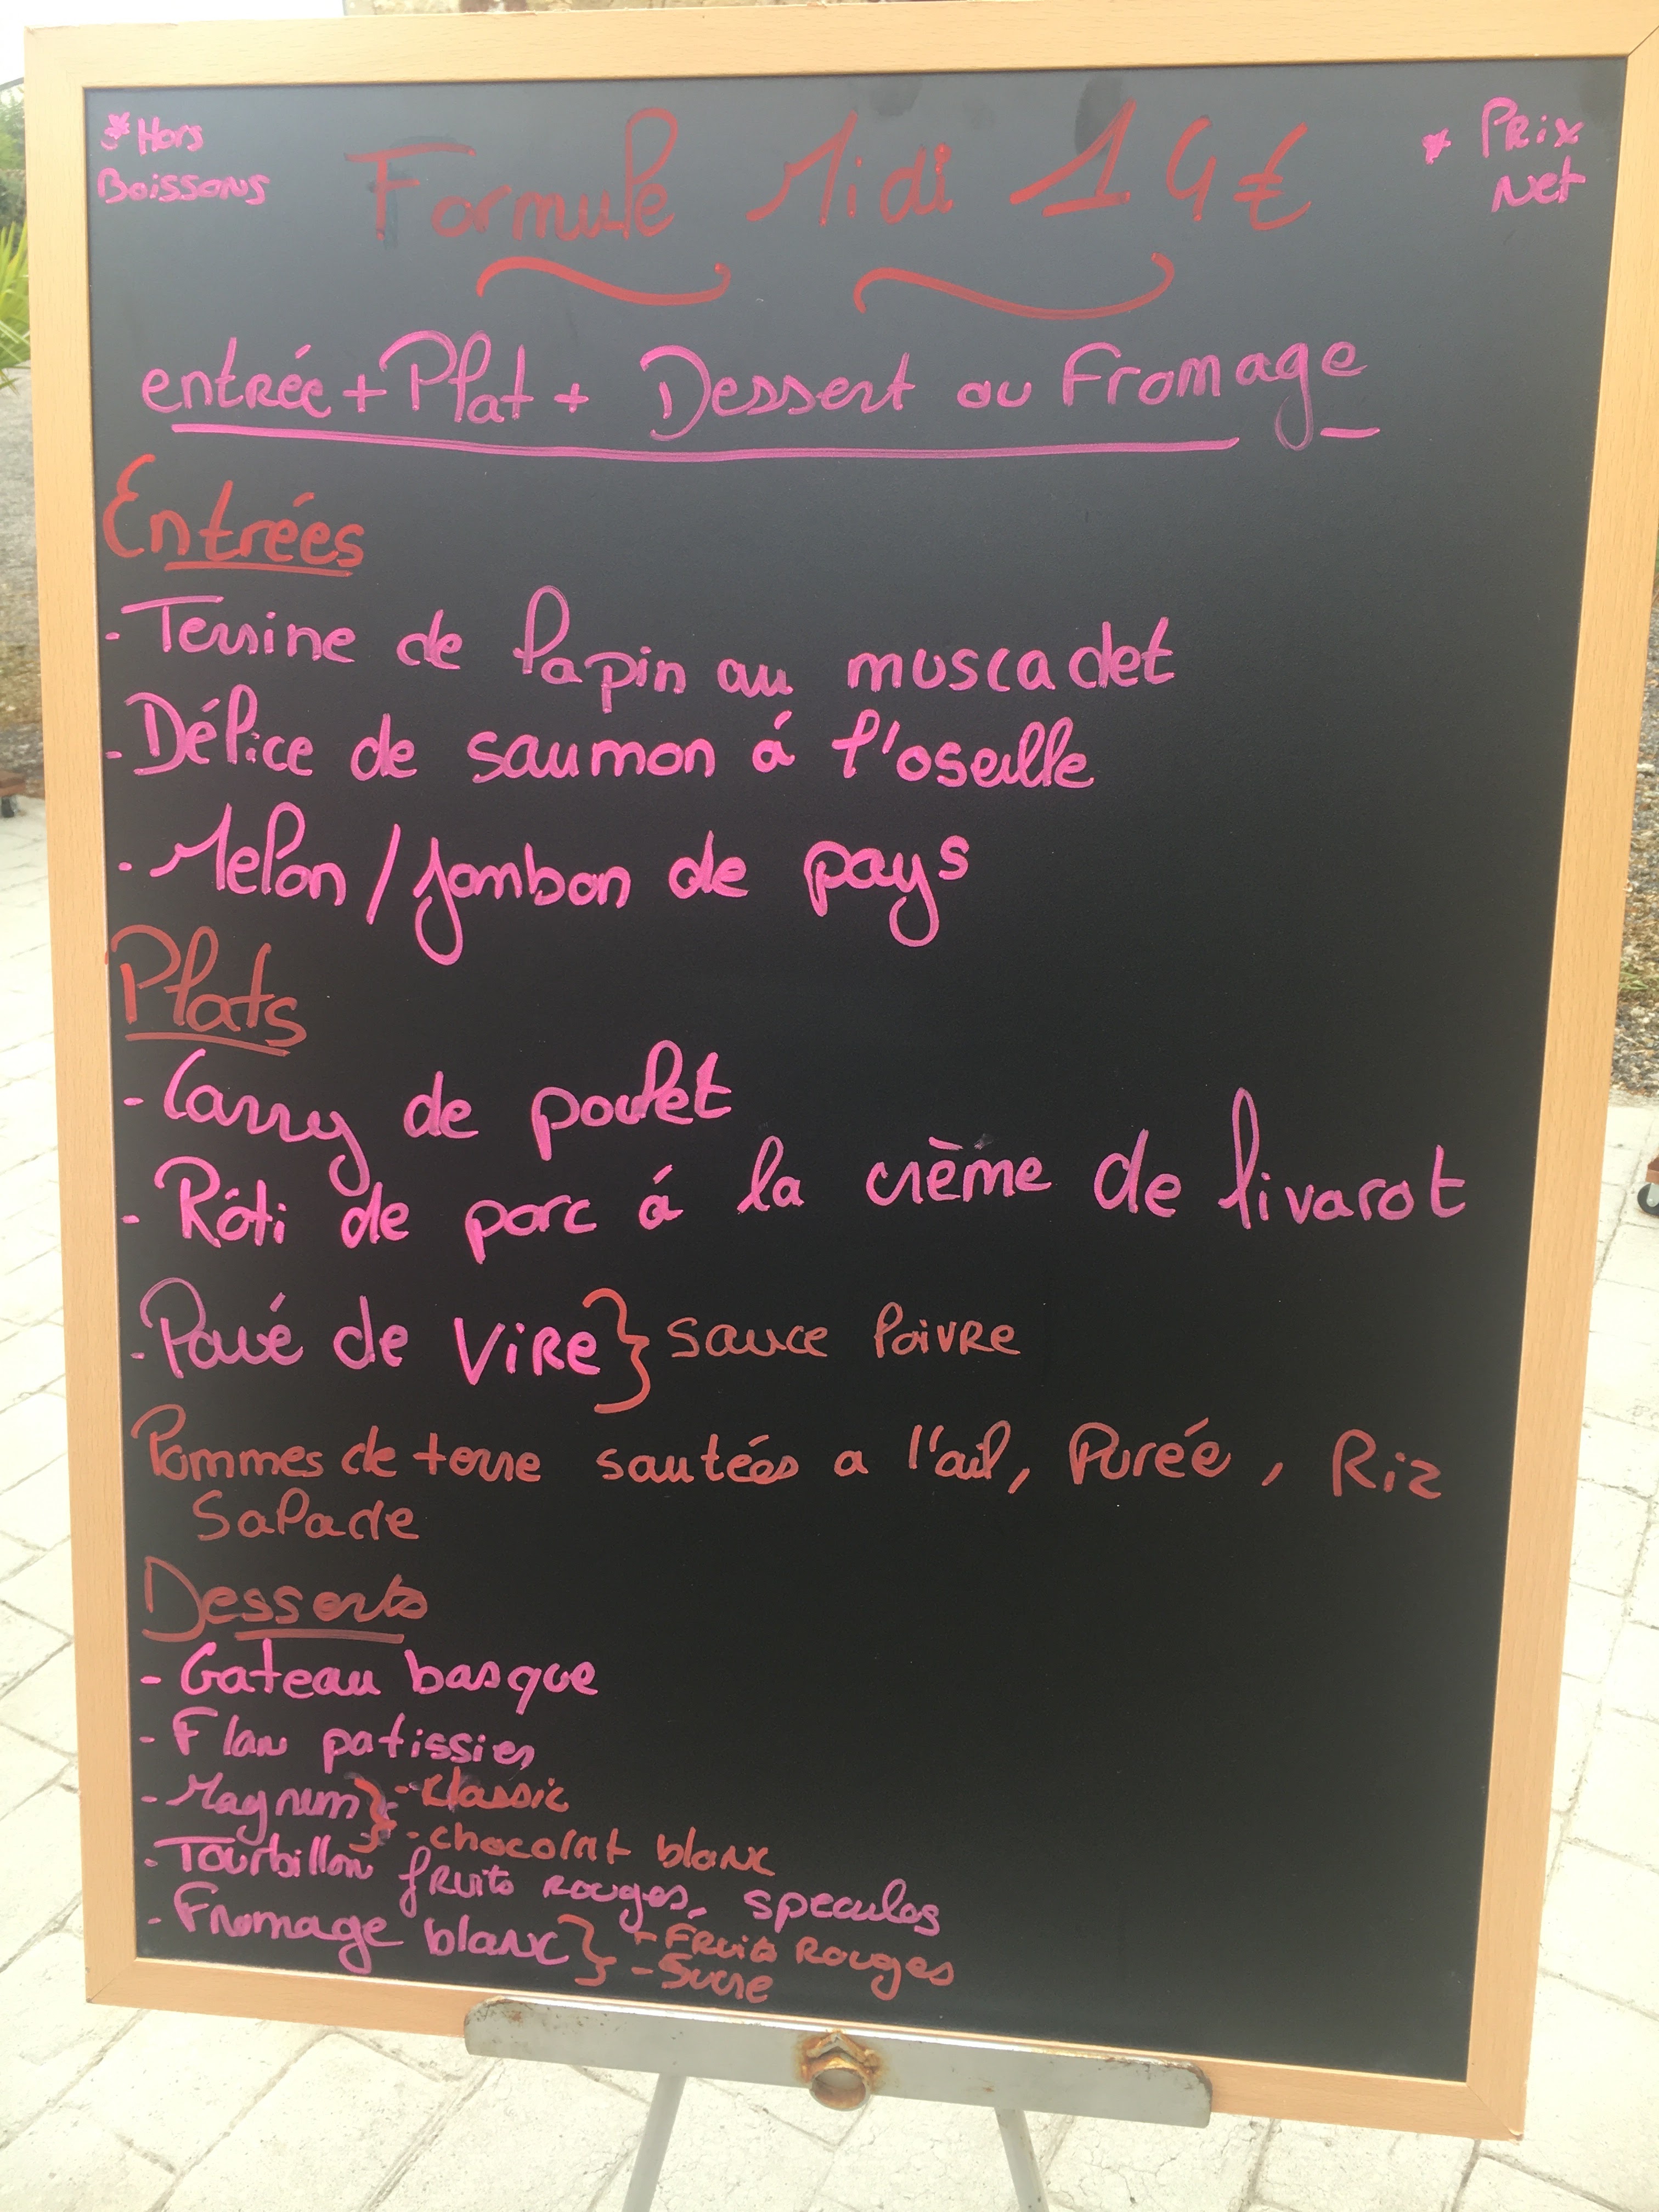 *Hors
Boissons
Formule Midi 14€
* Prix
Net
entrée + Plat + Dessert ou Fromage
Entrées
- Terrine de lapin au muscadet
- Délice de saumon á l'oseille
- Melon / Jambon de pays
Plats
- Carry de poulet
- Róti de porc á la crème de livarot
- Pavé de Vire } Sauce Poivre
Pommes de terre sautées a l'ail, Purée, Riz
Salade
Desserts
- Gateau basque
- Flan patissier
- Magnum } - Classic
- chocolat blanc
- Tourbillon fruits rouges, speculos
- Fromage blanc } + Fruits Rouges
- Sucre